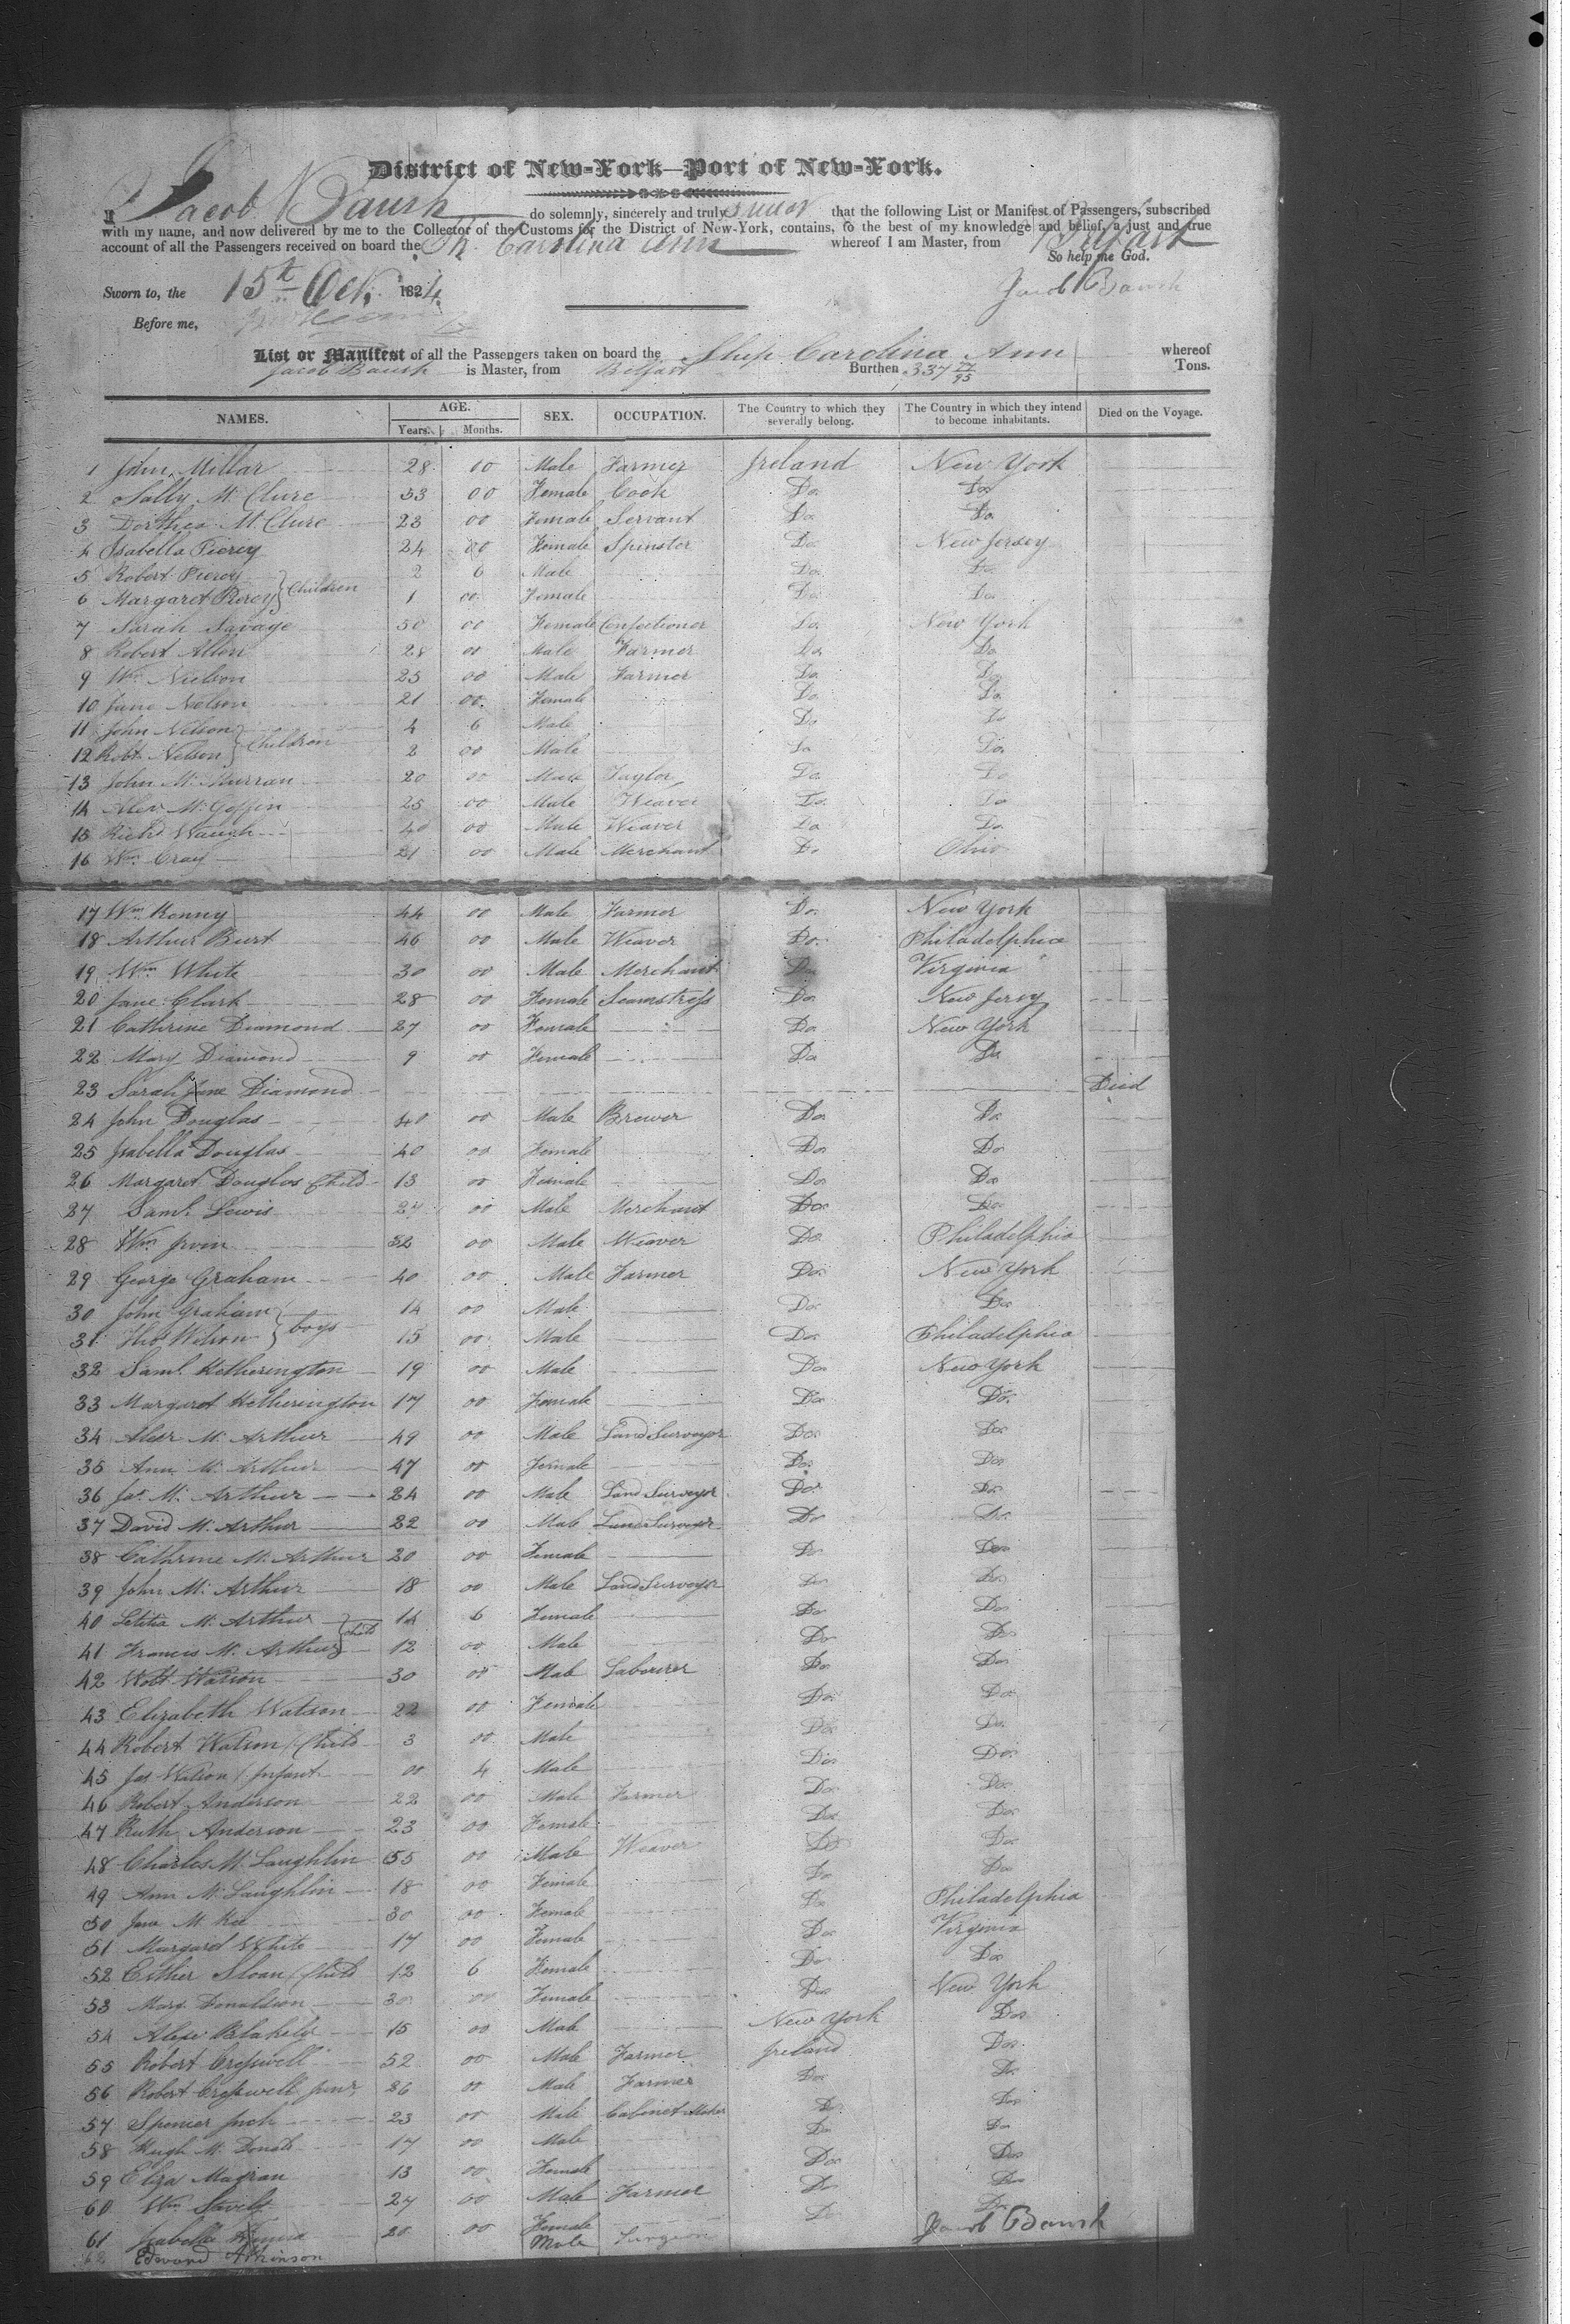 District of New-York—Port of New-York.
I, Jacob Baush do solemnly, sincerely and truly swear that the following List or Manifest of Passengers, subscribed
with my name, and now delivered by me to the Collector of the Customs for the District of New-York, contains, to the best of my knowledge and belief, a just and true
account of all the Passengers received on board the Sh. Carolina Ann whereof I am Master, from Belfast
So help me God.
Sworn to, the 15th Oct. 1824. Jacob Baush
Before me,
List or Manifest of all the Passengers taken on board the Ship Carolina Ann whereof
Jacob Baush is Master, from Belfast Burthen 337 Tons.
NAMES. AGE. SEX. OCCUPATION. The Country to which they severally belong. The Country in which they intend to become inhabitants. Died on the Voyage.
Years. Months.
1 John Millar 28 00 Male Farmer Ireland New York
2 Sally Mc Clure 53 00 Female Cook Do. Do
3 Dorthea Mc Clure 23 00 Female Servant Do Do
4 Isabella Piercy 24 00 Female Spinster Do New Jersey
5 Robert Piercy 2 6 Male Do. Do
6 Margaret Piercy } Children 1 00 Female Do. Do.
7 Sarah Savage 50 00 Female Confectioner Do. New York
8 Robert Allen 28 00 Male Farmer Do Do
9 Wm. Nielson 25 00 Male Farmer Do. Do
10 Jane Nelson 21 00 Female Do Do
11 John Nelson 4 6 Male Do Do
12 Robt. Nelson } Children 2 00 Male Do Do.
13 John Mc Murran 20 00 Male Taylor Do. Do
14 Alex. Mc Geffin 25 00 Male Weaver Do. Do
15 Richd. Waugh 40 00 Male Weaver Do Do
16 Wm. Cray 21 00 Male Merchant Do Ohio
17 Wm. Kenny 44 00 Male Farmer Do. New York
18 Arthur Burt 46 00 Male Weaver Do. Philadelphia
19 Wm. White 30 00 Male Merchant Do Virginia
20 Jane Clark 28 00 Female Seamstress Do New Jersy
21 Cathrine Diamond 27 00 Female Do New York
22 Mary Diamond 9 00 Female Do Do
23 Sarah Jane Diamond Died
24 John Douglas 40 00 Male Brewer Do Do
25 Isabella Douglas 40 00 Female Do Do
26 Margaret Douglas Child 13 00 Female Do Do
27 Saml. Lewis 27 00 Male Merchant Do Do
28 Wm. Irvin 32 00 Male Weaver Do Philadelphia
29 George Graham 40 00 Male Farmer Do. New York
30 John Graham 14 00 Male Do Do
31 Thos. Wilson } boys 15 00 Male Do Philadelphia
32 Saml. Hetherington 19 00 Male Do New York
33 Margaret Hetherington 17 00 Female Do Do.
34 Alexr Mc Arthur 49 00 Male Land Surveyor Do Do
35 Ann Mc Arthur 47 00 Female Do. Do
36 Jas. Mc Arthur 24 00 Male Land Surveyor Do. Do
37 David Mc Arthur 22 00 Male Land Surveyor Do Do
38 Cathrine Mc Arthur 20 00 Female Do Do
39 John Mc Arthur 18 00 Male Land Surveyor Do Do
40 Letitia Mc Arthur 14 6 Female Do Do
41 Francis Mc Arthur 12 00 Male Do Do
42 Watson 30 00 Male Labourer Do Do
43 Elizabeth Watson 22 00 Female Do Do
44 Robert Watson / Child 3 00 Male Do Do
45 Jas Watson / Infant 00 4 Male Do Do
46 Robert Anderson 22 00 Male Farmer Do Do
47 Ruth Anderson 23 00 Female Do Do
48 Charles Mc Laughlin 55 00 Male Weaver Do Do
49 Ann Mc Laughlin 18 00 Female Do Do
50 Jane Mc Kee 30 00 Female Do Philadelphia
51 Margaret White 17 00 Female Do Virginia
52 Esther Sloan / Child 12 6 Female Do Do
53 Mary Donaldson 30 00 Female Do New York
54 Alexr Blakely 15 00 Male New York Do
55 Robert Cresswell 52 00 Male Farmer Ireland Do
56 Robert Cresswell junr 26 00 Male Farmer Do Do
57 Spencer 23 00 Male Cabinet Maker Do Do
58 Hugh Mc Donald 17 00 Male Do Do
59 Eliza Magran 13 00 Female Do Do
60 Wm. 27 00 Male Farmer Do Do
61 Isabella 20 00 Female Do Do
62 Edward Atkinson Male Surgeon
Jacob Baush